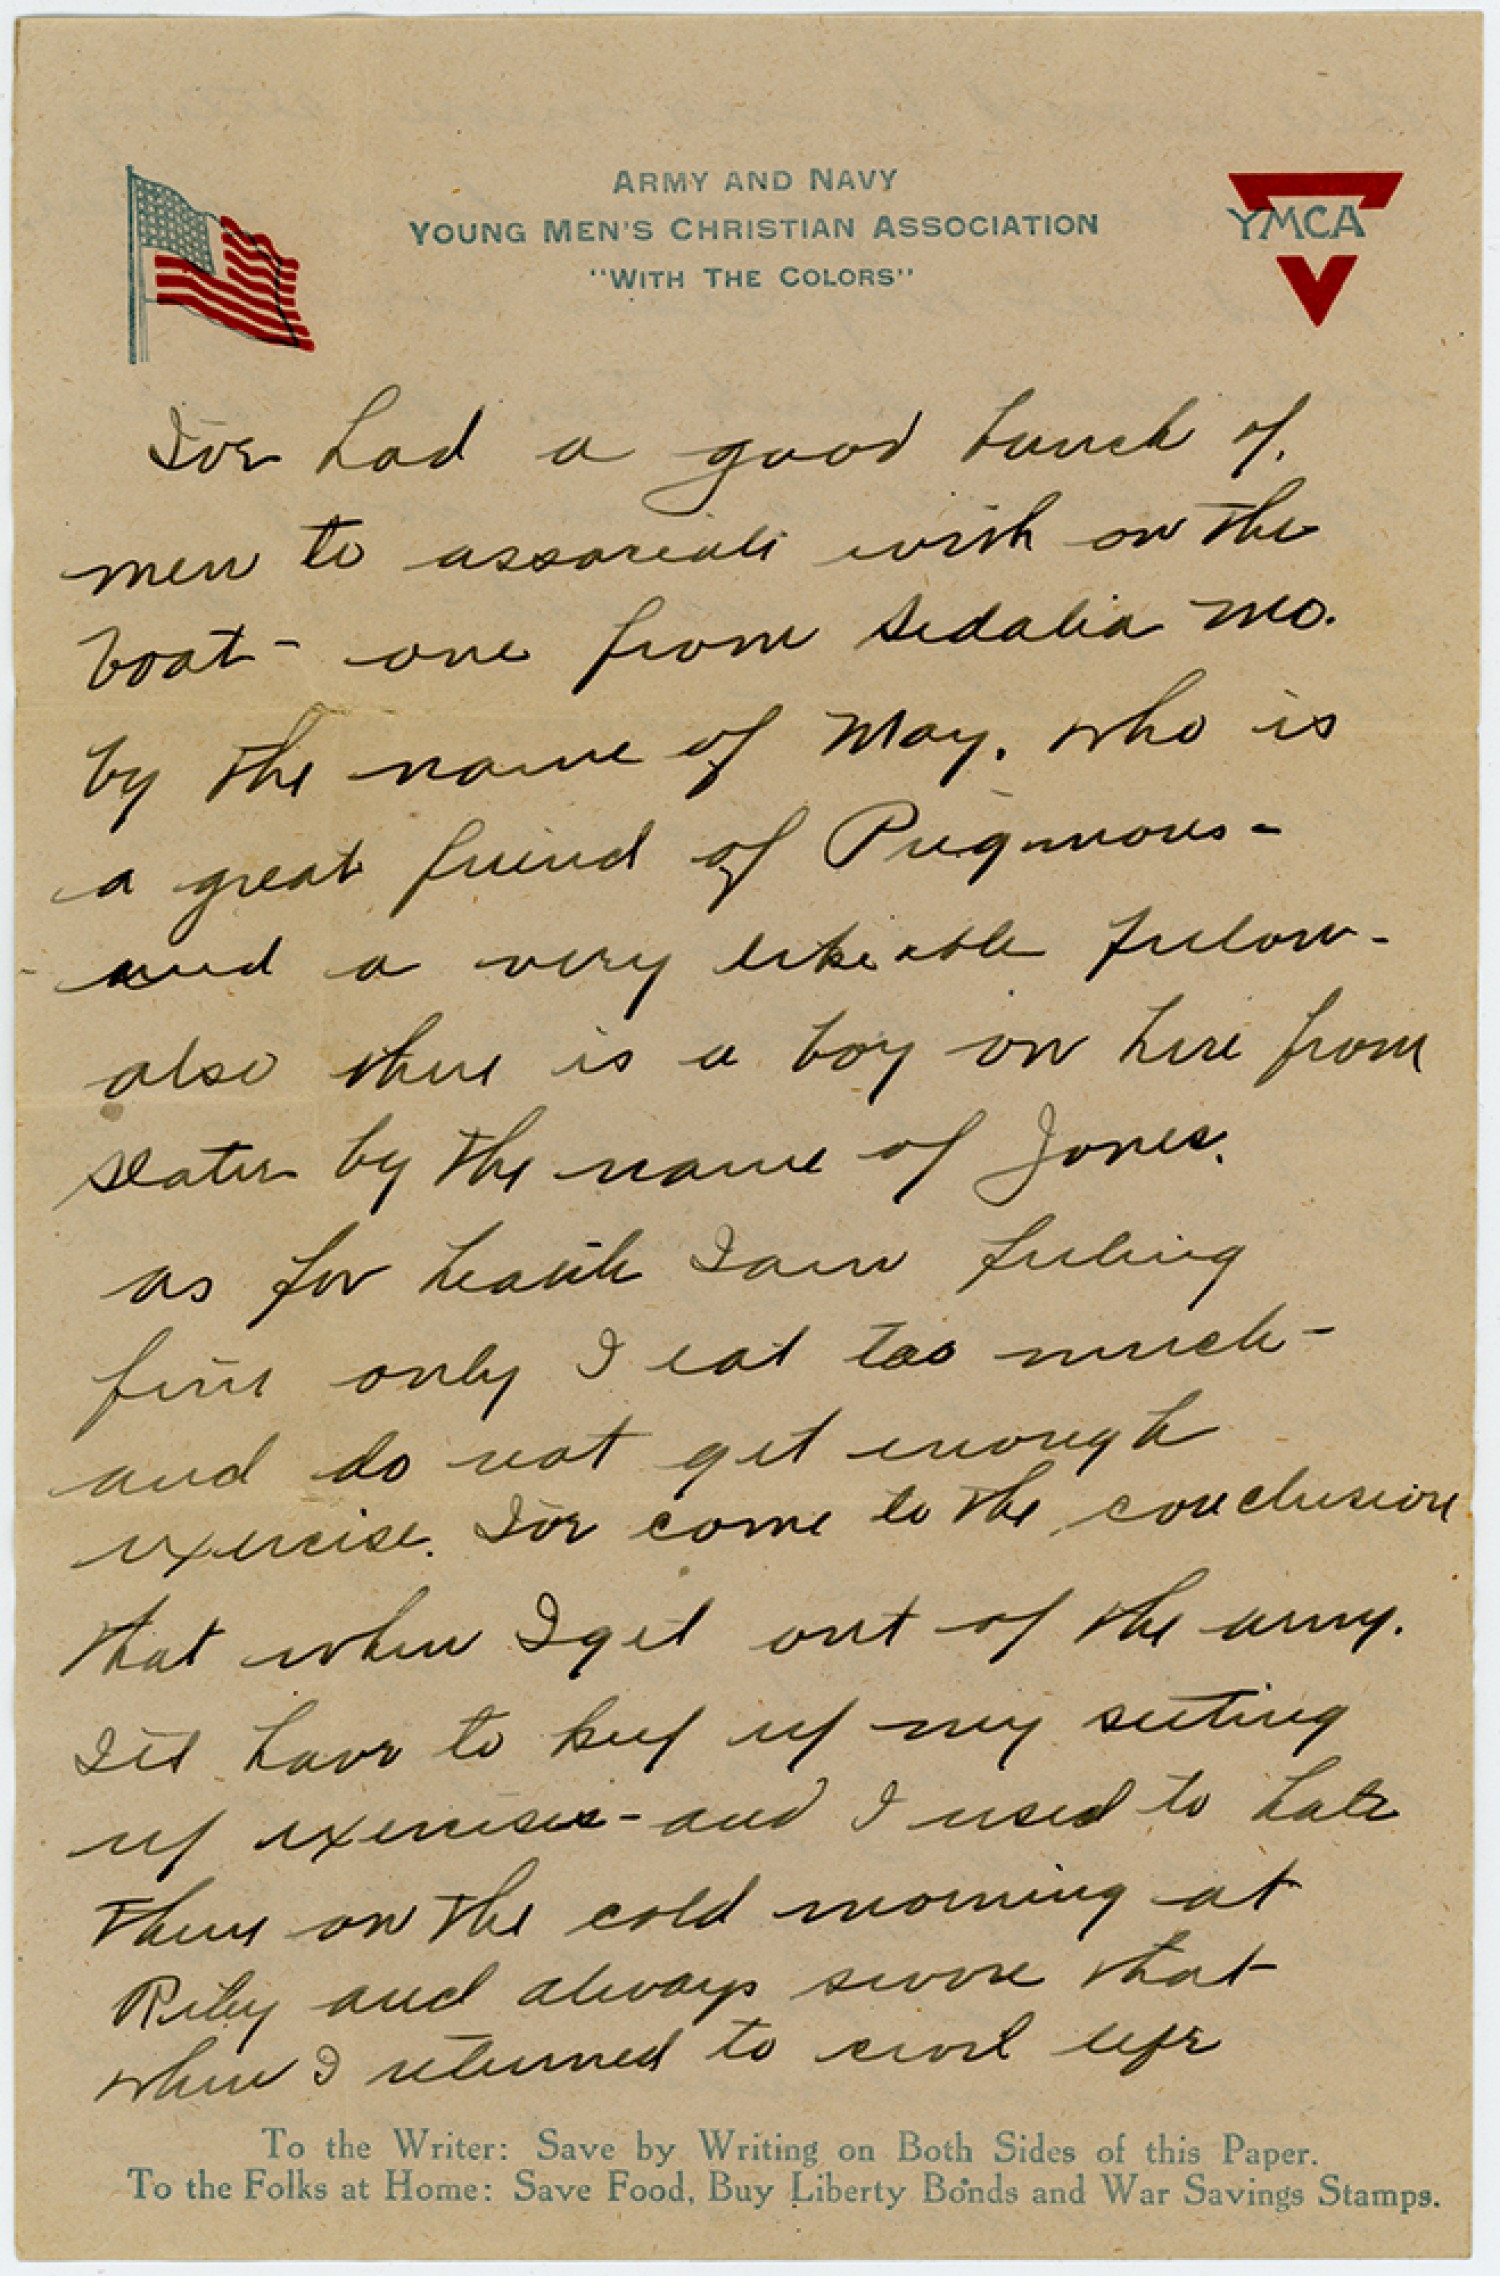 ARMY AND NAVY
YOUNG MEN'S CHRISTIAN ASSOCIATION
"WITH THE COLORS"
YMCA
I've had a good bunch of
men to associate with on the
boat - one from Sedalia Mo.
by the name of May. who is
a great friend of
and a very likeable fellow -
also there is a boy on here from
Slater by the name of Jones.
as for health I am feeling
fine only I eat too much -
and do not get enough
exercise. I've come to the conclusion
that when I get out of the army.
I'll have to keep up my setting
up exercises - and I used to hate
them on the cold morning at
Riley and always swore that
when I returned to civil life
To the Writer: Save by Writing on Both Sides of this Paper.
To the Folks at Home: Save Food, Buy Liberty Bonds and War Savings Stamps.